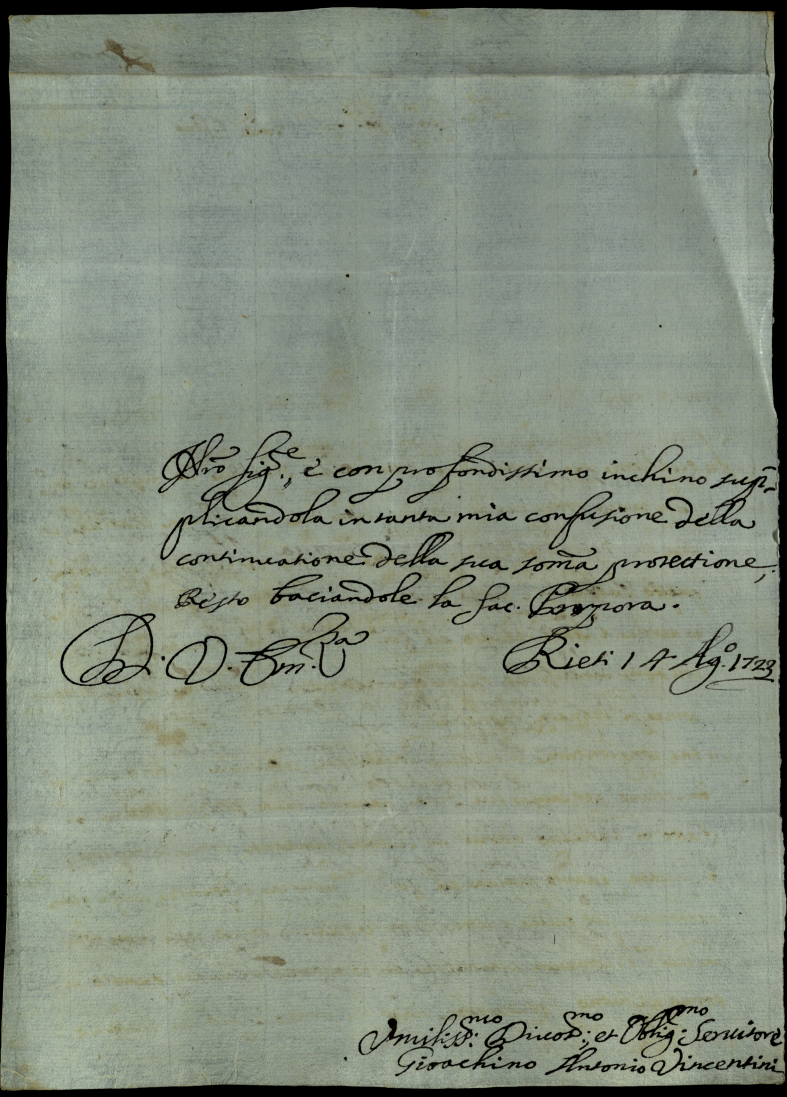 Nrõ Sig.re, e con profondissimo inchino sup-
plicandola in tanta mia confusione della
continuatione della sua som̃a protectione,
Resto baciandole la Sac. Porpora.
D. V. Em.za Rieti 14 Ag.o 1723
Umiliss.mo Divot.mo, et Oblig.mo Servitore
Gioachino Antonio Vincentini